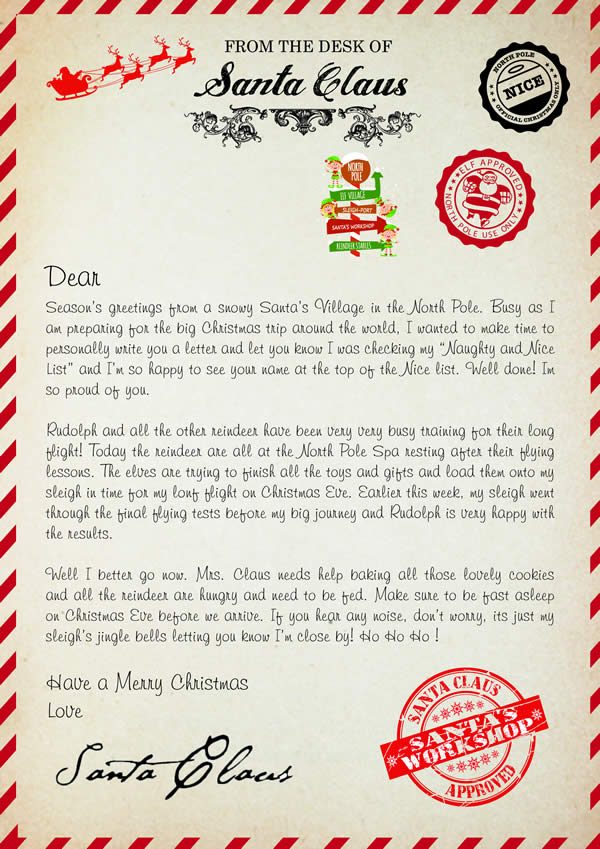 FROM THE DESK OF
Santa Claus
NORTH POLE
NICE
OFFICIAL CHRISTMAS ONLY
NORTH
POLE
ELF VILLAGE
SLEIGH-PORT
SANTA'S WORKSHOP
REINDEER STABLES
ELF APPROVED
NORTH POLE USE ONLY
Dear
Season's greetings from a snowy Santa's Village in the North Pole. Busy as I
am preparing for the big Christmas trip around the world, I wanted to make time to
personally write you a letter and let you know I was checking my "Naughty and Nice
List" and I'm so happy to see your name at the top of the Nice list. Well done! Im
so proud of you.
Rudolph and all the other reindeer have been very very busy training for their long
flight! Today the reindeer are all at the North Pole Spa resting after their flying
lessons. The elves are trying to finish all the toys and gifts and load them onto my
sleigh in time for my lonf flight on Christmas Eve. Earlier this week, my sleigh went
through the final flying tests before my big journey and Rudolph is very happy with
the results.
Well I better go now. Mrs. Claus needs help baking all those lovely cookies
and all the reindeer are hungry and need to be fed. Make sure to be fast asleep
on Christmas Eve before we arrive. If you hear any noise, don't worry, its just my
sleigh's jingle bells letting you know I'm close by! Ho Ho Ho !
Have a Merry Christmas
Love
Santa Claus
SANTA CLAUS
SANTA'S
WORKSHOP
APPROVED